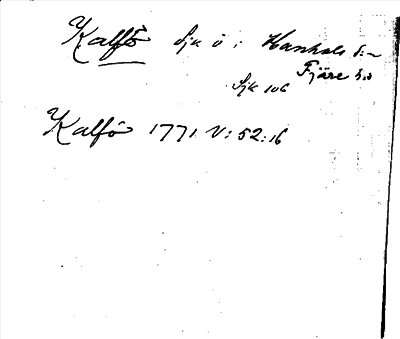 Kalfö Sjk ö i Hanhals s:n
Fjäre h:d
Sjk 106
Kalfö 1771 V: 52:16